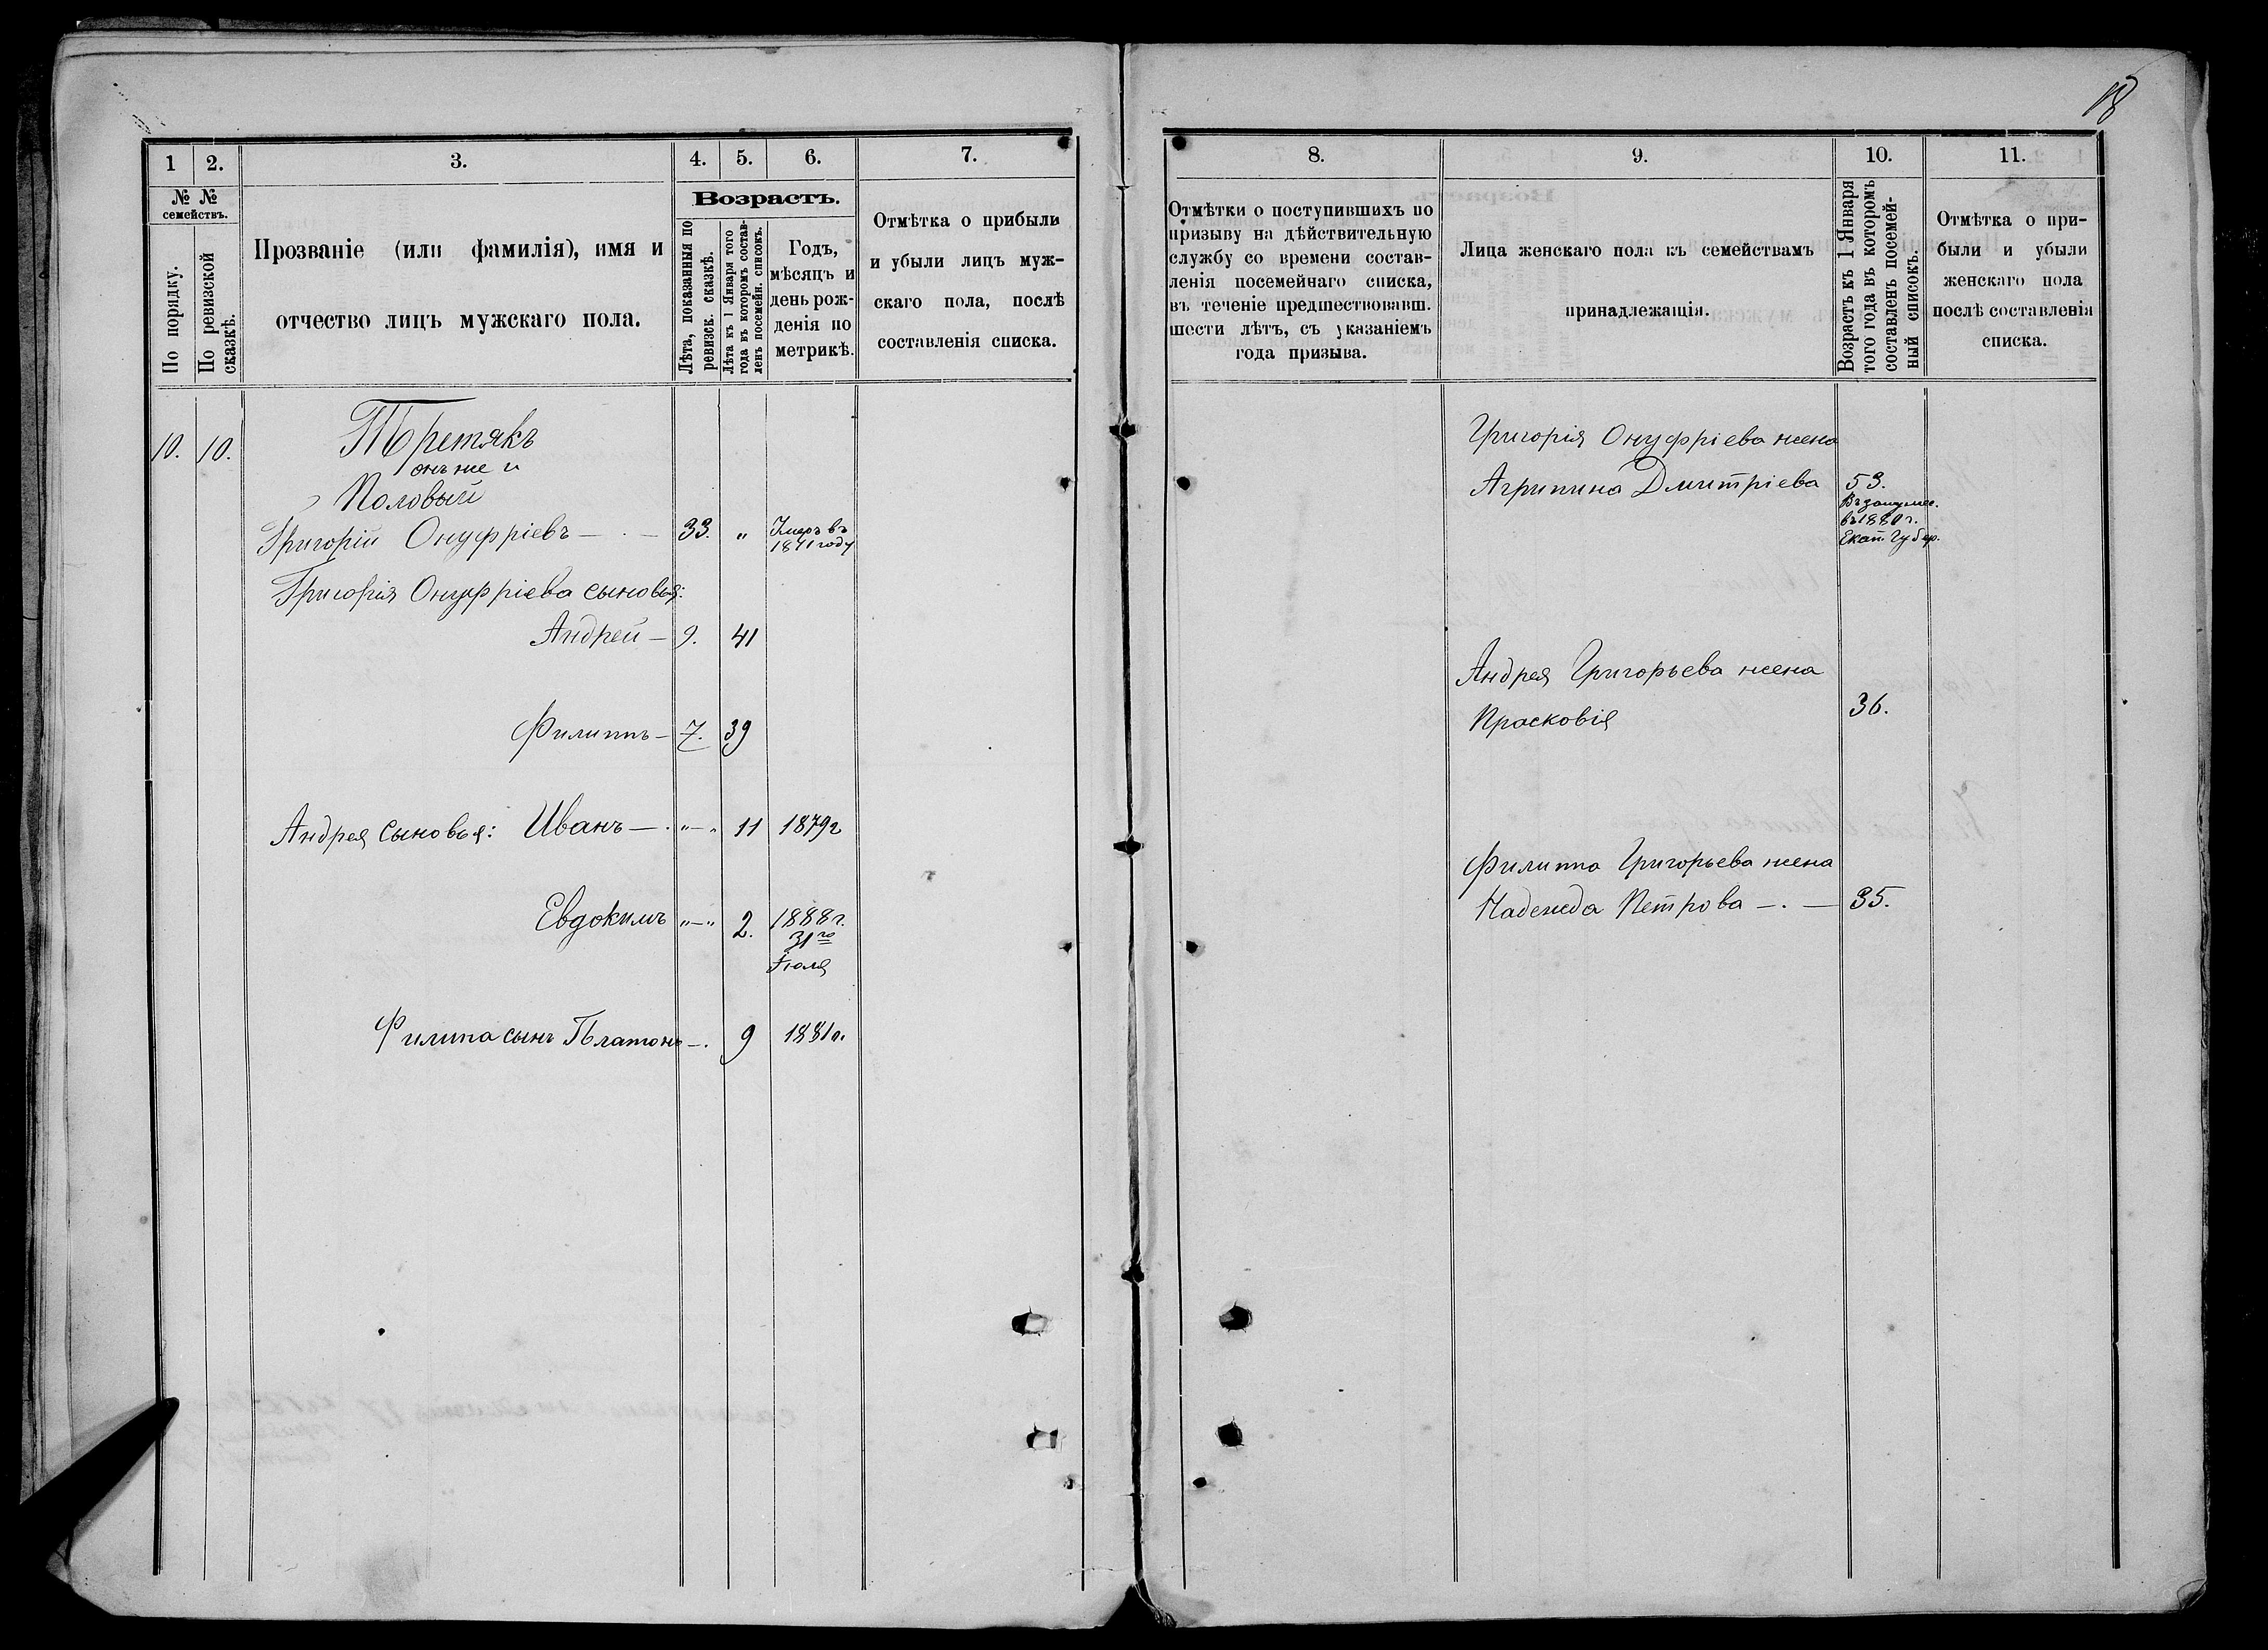 18
1
2.
3.
4.
5.
6.
7.
№ №
семействъ.
По порядку.
По ревизской
сказкѣ.
Прозваніе (или фамилія), имя и
отчество лицъ мужскаго пола.
Возрастъ.
Лѣта, показанныя по
ревизск. сказкѣ.
Лѣта къ 1 Января того
года въ которомъ состав-
ленъ посемейн. списокъ.
Годъ,
мѣсяцъ и
день рож-
денія по
метрикѣ.
Отмѣтка о прибыли
и убыли лицъ муж-
скаго пола, послѣ
составленія списка.
10. 10. Третякъ
онъ же и
Половый
Григорій Онуфріевъ — . — 33. „ Умеръ въ
1871 году
Григорія Онуфріева сыновья:
Андрей — 9. 41
Филиппъ — 7. 39
Андрея сыновья: Иванъ — . „—„ 11 1879г
Евдокимъ „—„ 2. 1888г.
31го
Іюля
Филипа сынъ Платонъ —. 9 1881г.
8.
9.
10.
11.
Отмѣтки о поступившихъ по
призыву на дѣйствительную
службу со времени состав-
ленія посемейнаго списка,
въ теченіе предшествовавш.
шести лѣтъ, съ указаніемъ
года призыва.
Лица женскаго пола къ семействамъ
принадлежащія.
Возрастъ къ 1 Января
того года въ которомъ
составленъ посемей-
ный списокъ.
Отмѣтка о при-
были и убыли
женскаго пола
послѣ составленія
списка.
Григорія Онуфріева жена
Агрипина Дмитріева 53.
въ 1880 г.
Екат. Губер.
Андрея Григорьева жена
Прасковія 36.
Филиппа Григорьева жена
Надежда Петрова —. — 35.